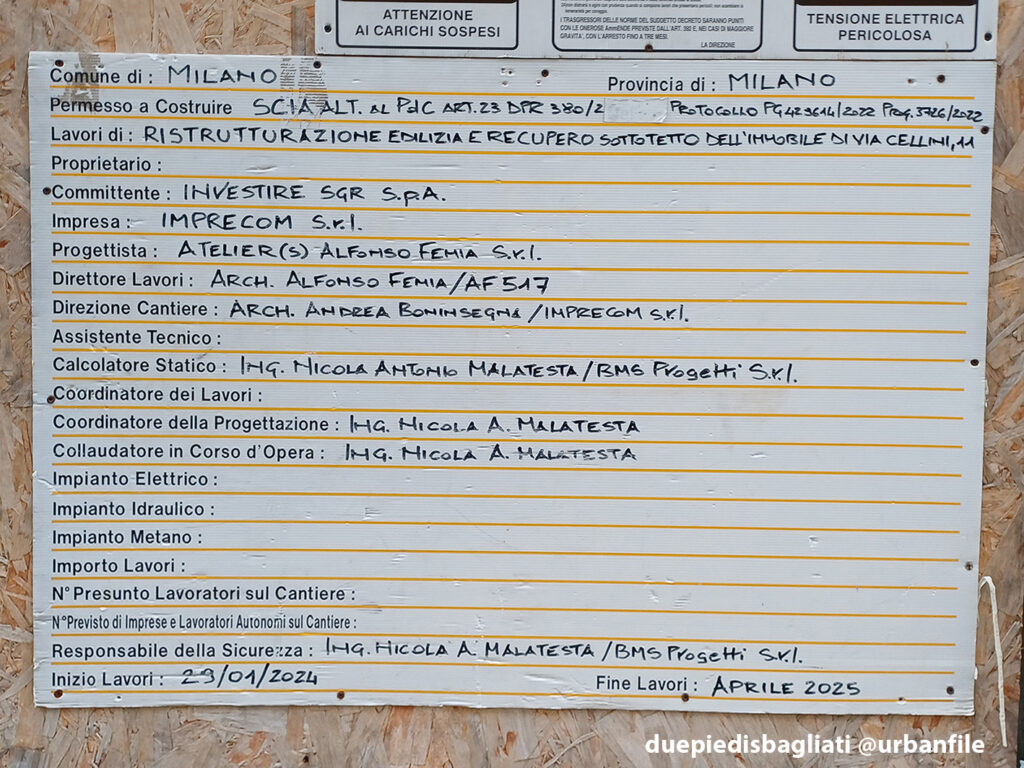 ATTENZIONE
AI CARICHI SOSPESI
I TRASGRESSORI DELLE NORME DEL SUDDETTO DECRETO SARANNO PUNITI
CON LE ONEROSE AmmENDE PREVISTE DALL'ART. 392 E, NEI CASI DI MAGGIORE
GRAVITA', CON L'ARRESTO FINO A TRE MESI.
LA DIREZIONE
TENSIONE ELETTRICA
PERICOLOSA
Comune di : MILANO Provincia di : MILANO
Permesso a Costruire SCIA ALT. AL PdC ART.23 DPR 380/2 PROTOCOLLO PG 429614/2022 Prog. 3726/2022
Lavori di : RISTRUTTURAZIONE EDILIZIA E RECUPERO SOTTOTETTO DELL'IMMOBILE DI VIA CELLINI, 11
Proprietario :
Committente : INVESTIRE SGR S.p.A.
Impresa : IMPRECOM S.r.l.
Progettista : ATELIER(S) ALFONSO FEMIA S.r.l.
Direttore Lavori : ARCH. ALFONSO FEMIA/AF517
Direzione Cantiere : ARCH. ANDREA BONINSEGNA /IMPRECOM S.r.l.
Assistente Tecnico :
Calcolatore Statico : ING. NICOLA ANTONIO MALATESTA /BMS Progetti S.r.l.
Coordinatore dei Lavori :
Coordinatore della Progettazione : ING. NICOLA A. MALATESTA
Collaudatore in Corso d'Opera : ING. NICOLA A. MALATESTA
Impianto Elettrico :
Impianto Idraulico :
Impianto Metano :
Importo Lavori :
N° Presunto Lavoratori sul Cantiere :
N° Previsto di Imprese e Lavoratori Autonomi sul Cantiere :
Responsabile della Sicurezza : ING. NICOLA A. MALATESTA /BMS Progetti S.r.l.
Inizio Lavori : 29/01/2024 Fine Lavori : APRILE 2025
duepiedisbagliati @urbanfile